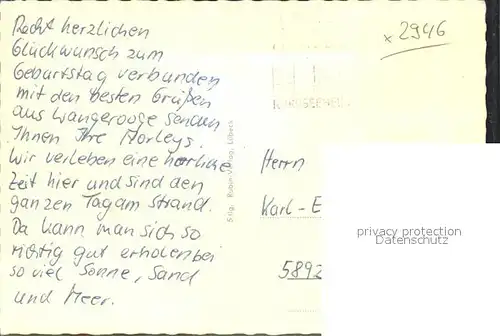 Recht herzlichen
Glückwunsch zum
Geburtstag verbunden
mit den besten Grüßen
aus Wangerooge senden
Ihnen Ihre Morleys.
Wir verleben eine herrliche
Zeit hier und sind den
ganzen Tag am Strand.
Da kann man sich so
richtig gut erholen bei
so viel Sonne, Sand
und Meer.
x 2946
Verlag, Lübeck
Herrn
Karl - E
5892
privacy protection
Datenschutz